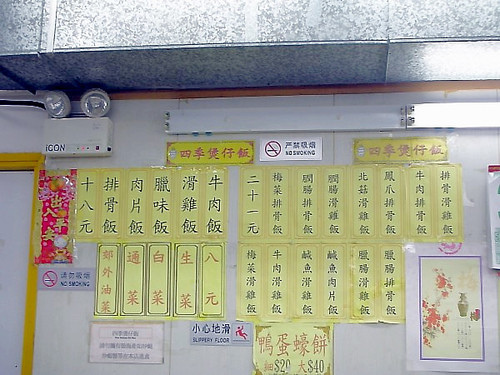 iCON
四季煲仔飯
严禁吸烟
NO SMOKING
四季煲仔飯
出入平安
十八元
排骨飯
肉片飯
臘味飯
滑雞飯
牛肉飯
二十一元
梅菜排骨飯
潤腸排骨飯
潤腸滑雞飯
北菇滑雞飯
鳳爪排骨飯
牛肉排骨飯
排骨滑雞飯
郊外油菜
通菜
白菜
生菜
八元
梅菜滑雞飯
牛肉滑雞飯
鹹魚滑雞飯
鹹魚肉片飯
臘腸滑雞飯
臘腸排骨飯
请勿吸烟
NO SMOKING
小心地滑
SLIPPERY FLOOR
四季煲仔飯
鴨蛋蠔餅
細$20 大$40